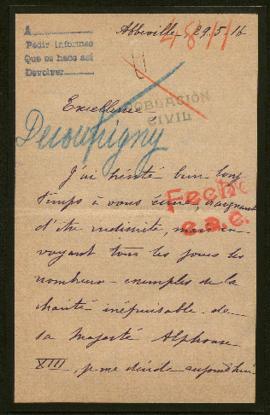 A
Pedir informes
Que se hace así
Devolver
Abbeville, 29.5.16
4811
Excellence
POBLACIÓN
CIVIL
Decoupigny
J'ai hésité bien long
temps à vous écrire, craignant
Fecho
d'être indiscrète, mais en
c.a.e.
voyant tous les jours les
nombreux exemples de la
charité inépuisable de
sa Majesté Alphonse
XIII, je me décide aujourd'hui